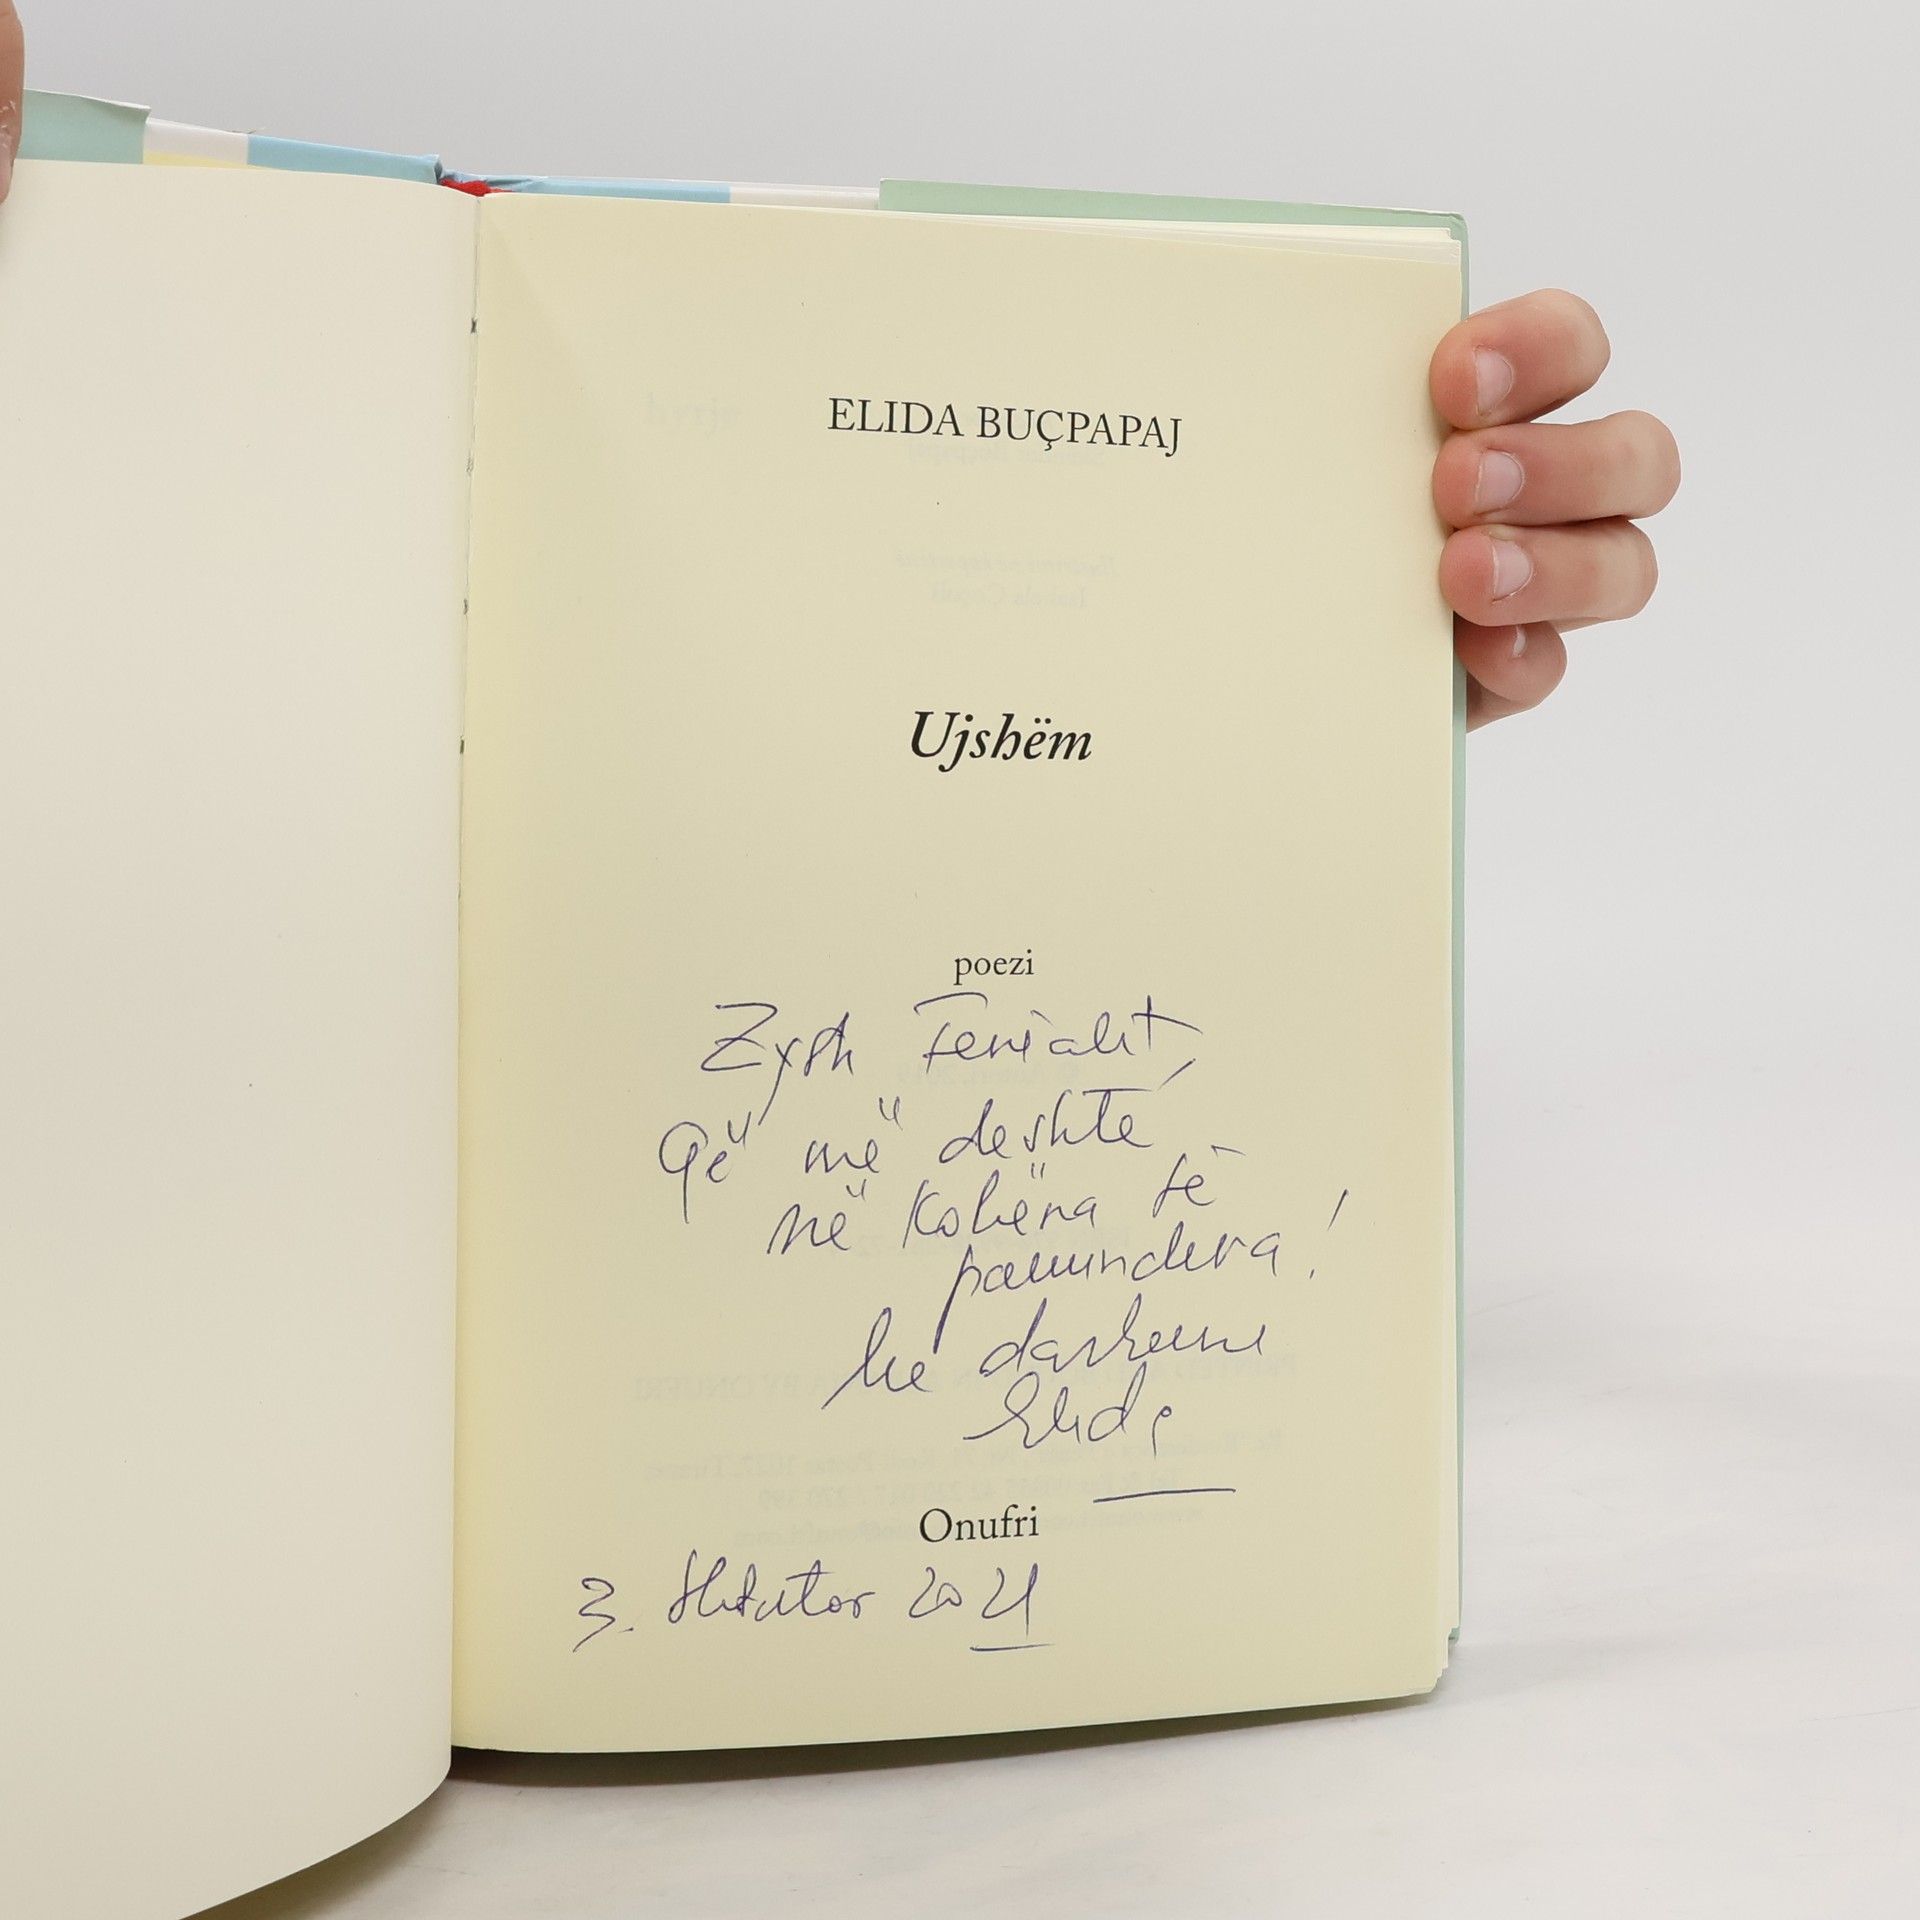 ELIDA BUÇPAPAJ
Ujshëm
poezi
Zysh
Që më deshte
në kohëna të
pamundura!
Me dashuri
Elida
Onufri
3. Shtator 2021